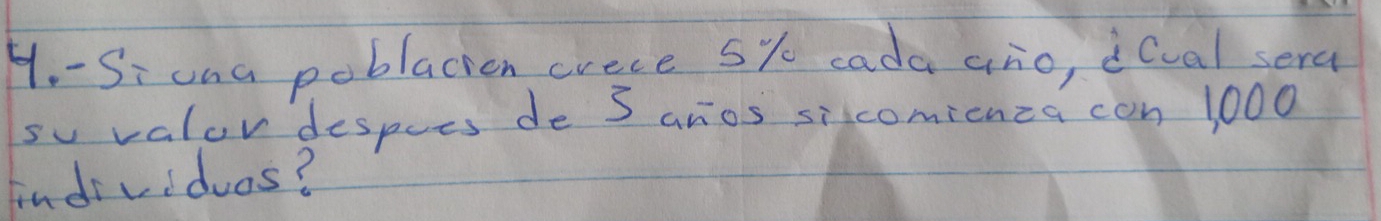 4.- Si una poblacion crece 5% cada año, ¿Cual sera
su valor despues de 3 años si comienza con 1,000
individuos?